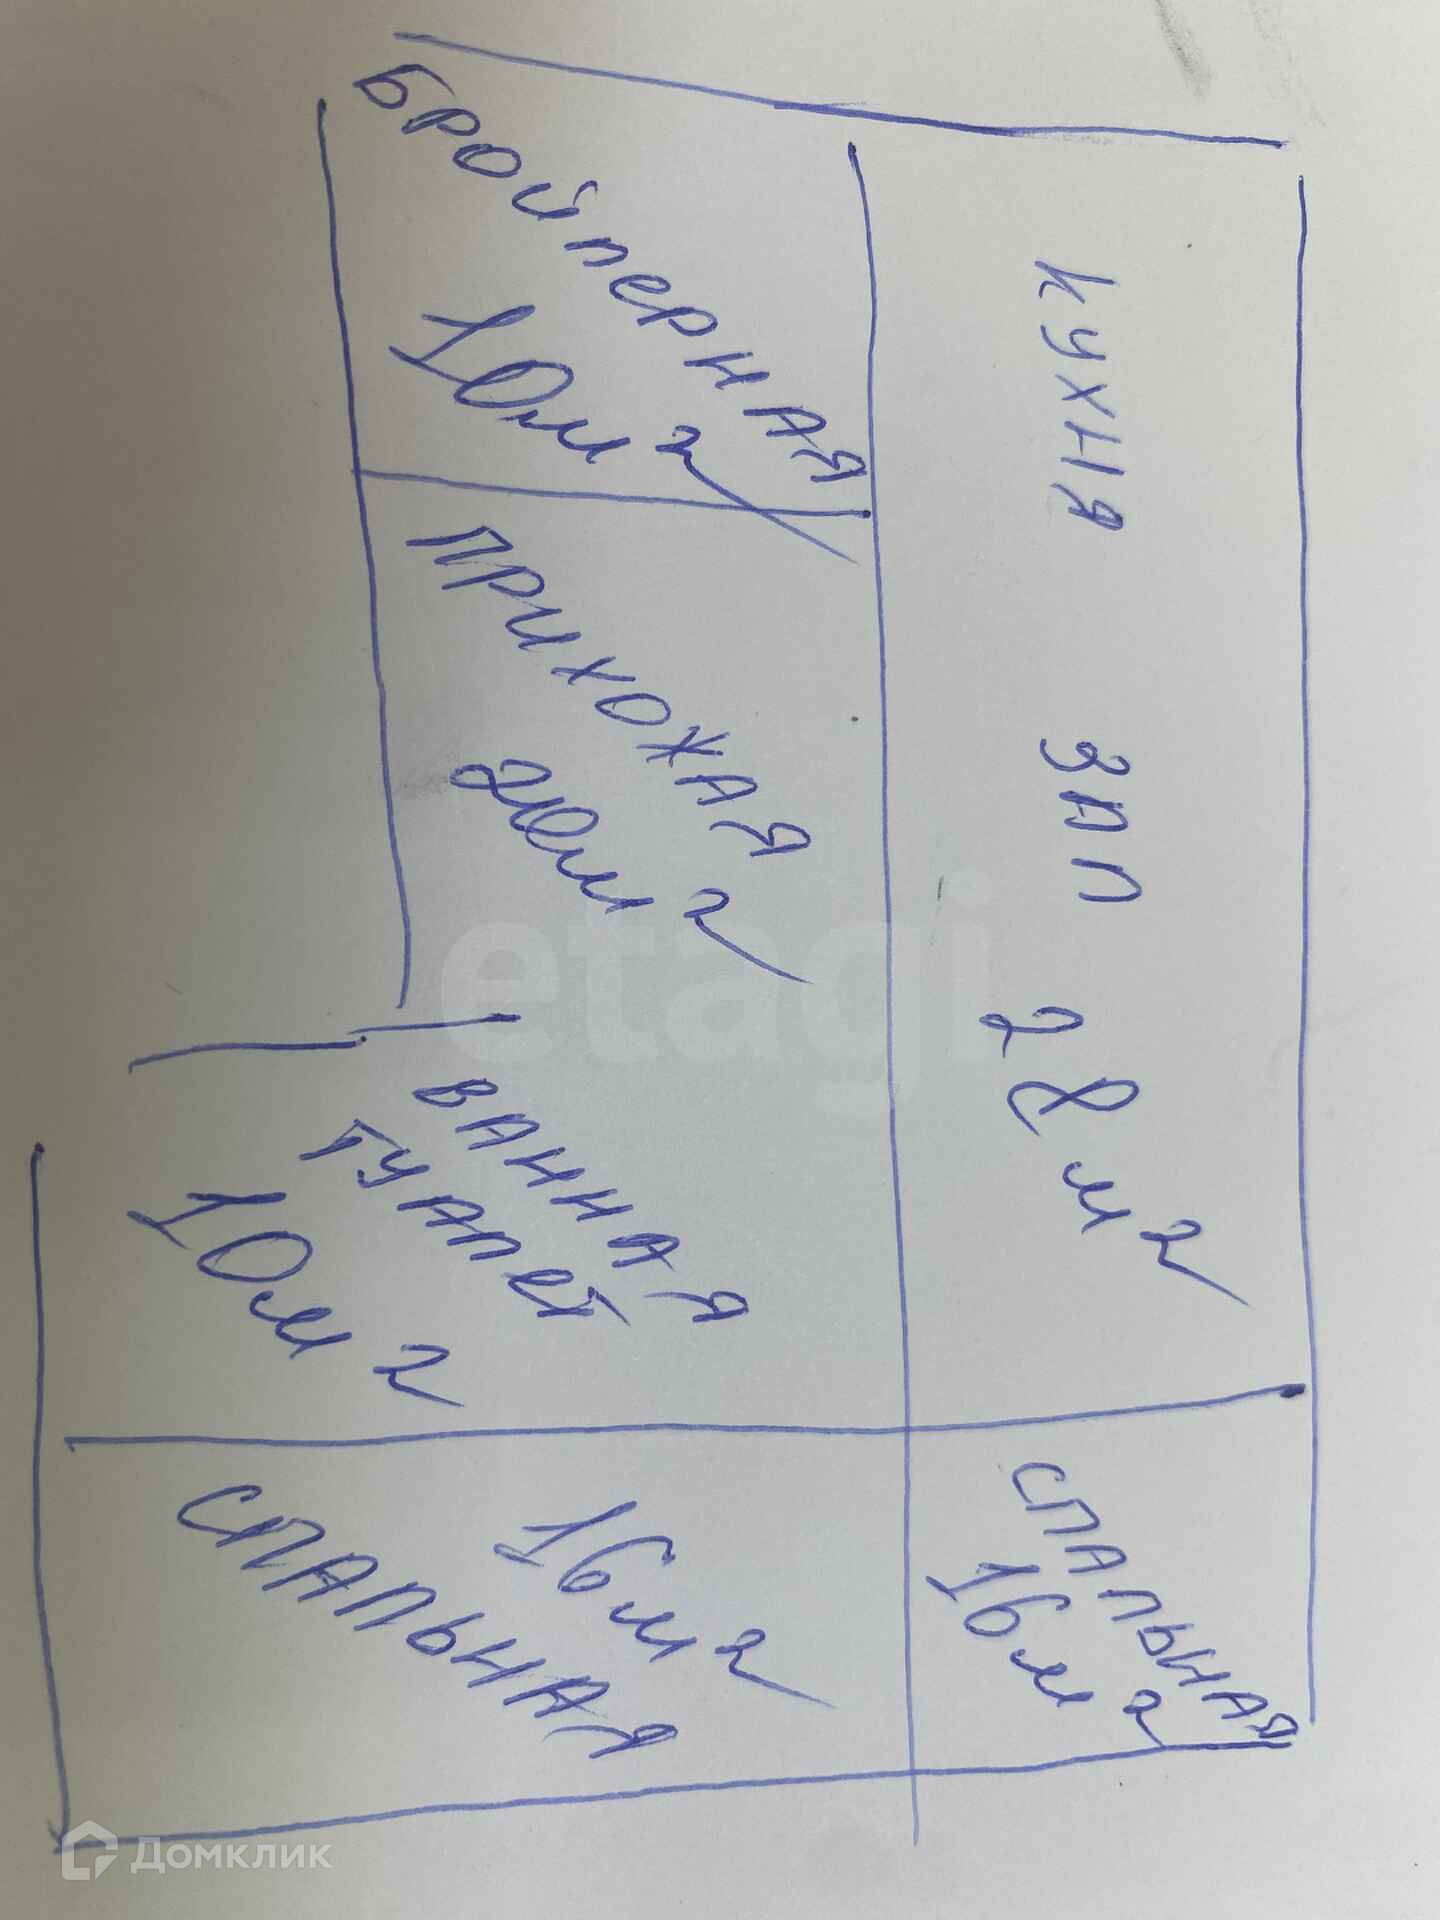 БРОЙЛЕРНАЯ
10м2
КУХНЯ ЗАЛ 28м2
ПРИХОЖАЯ
20м2
ВАННАЯ
ТУАЛЕТ
10м2
СПАЛЬНАЯ
16м2
16м2
СПАЛЬНАЯ
etagi
Домклик